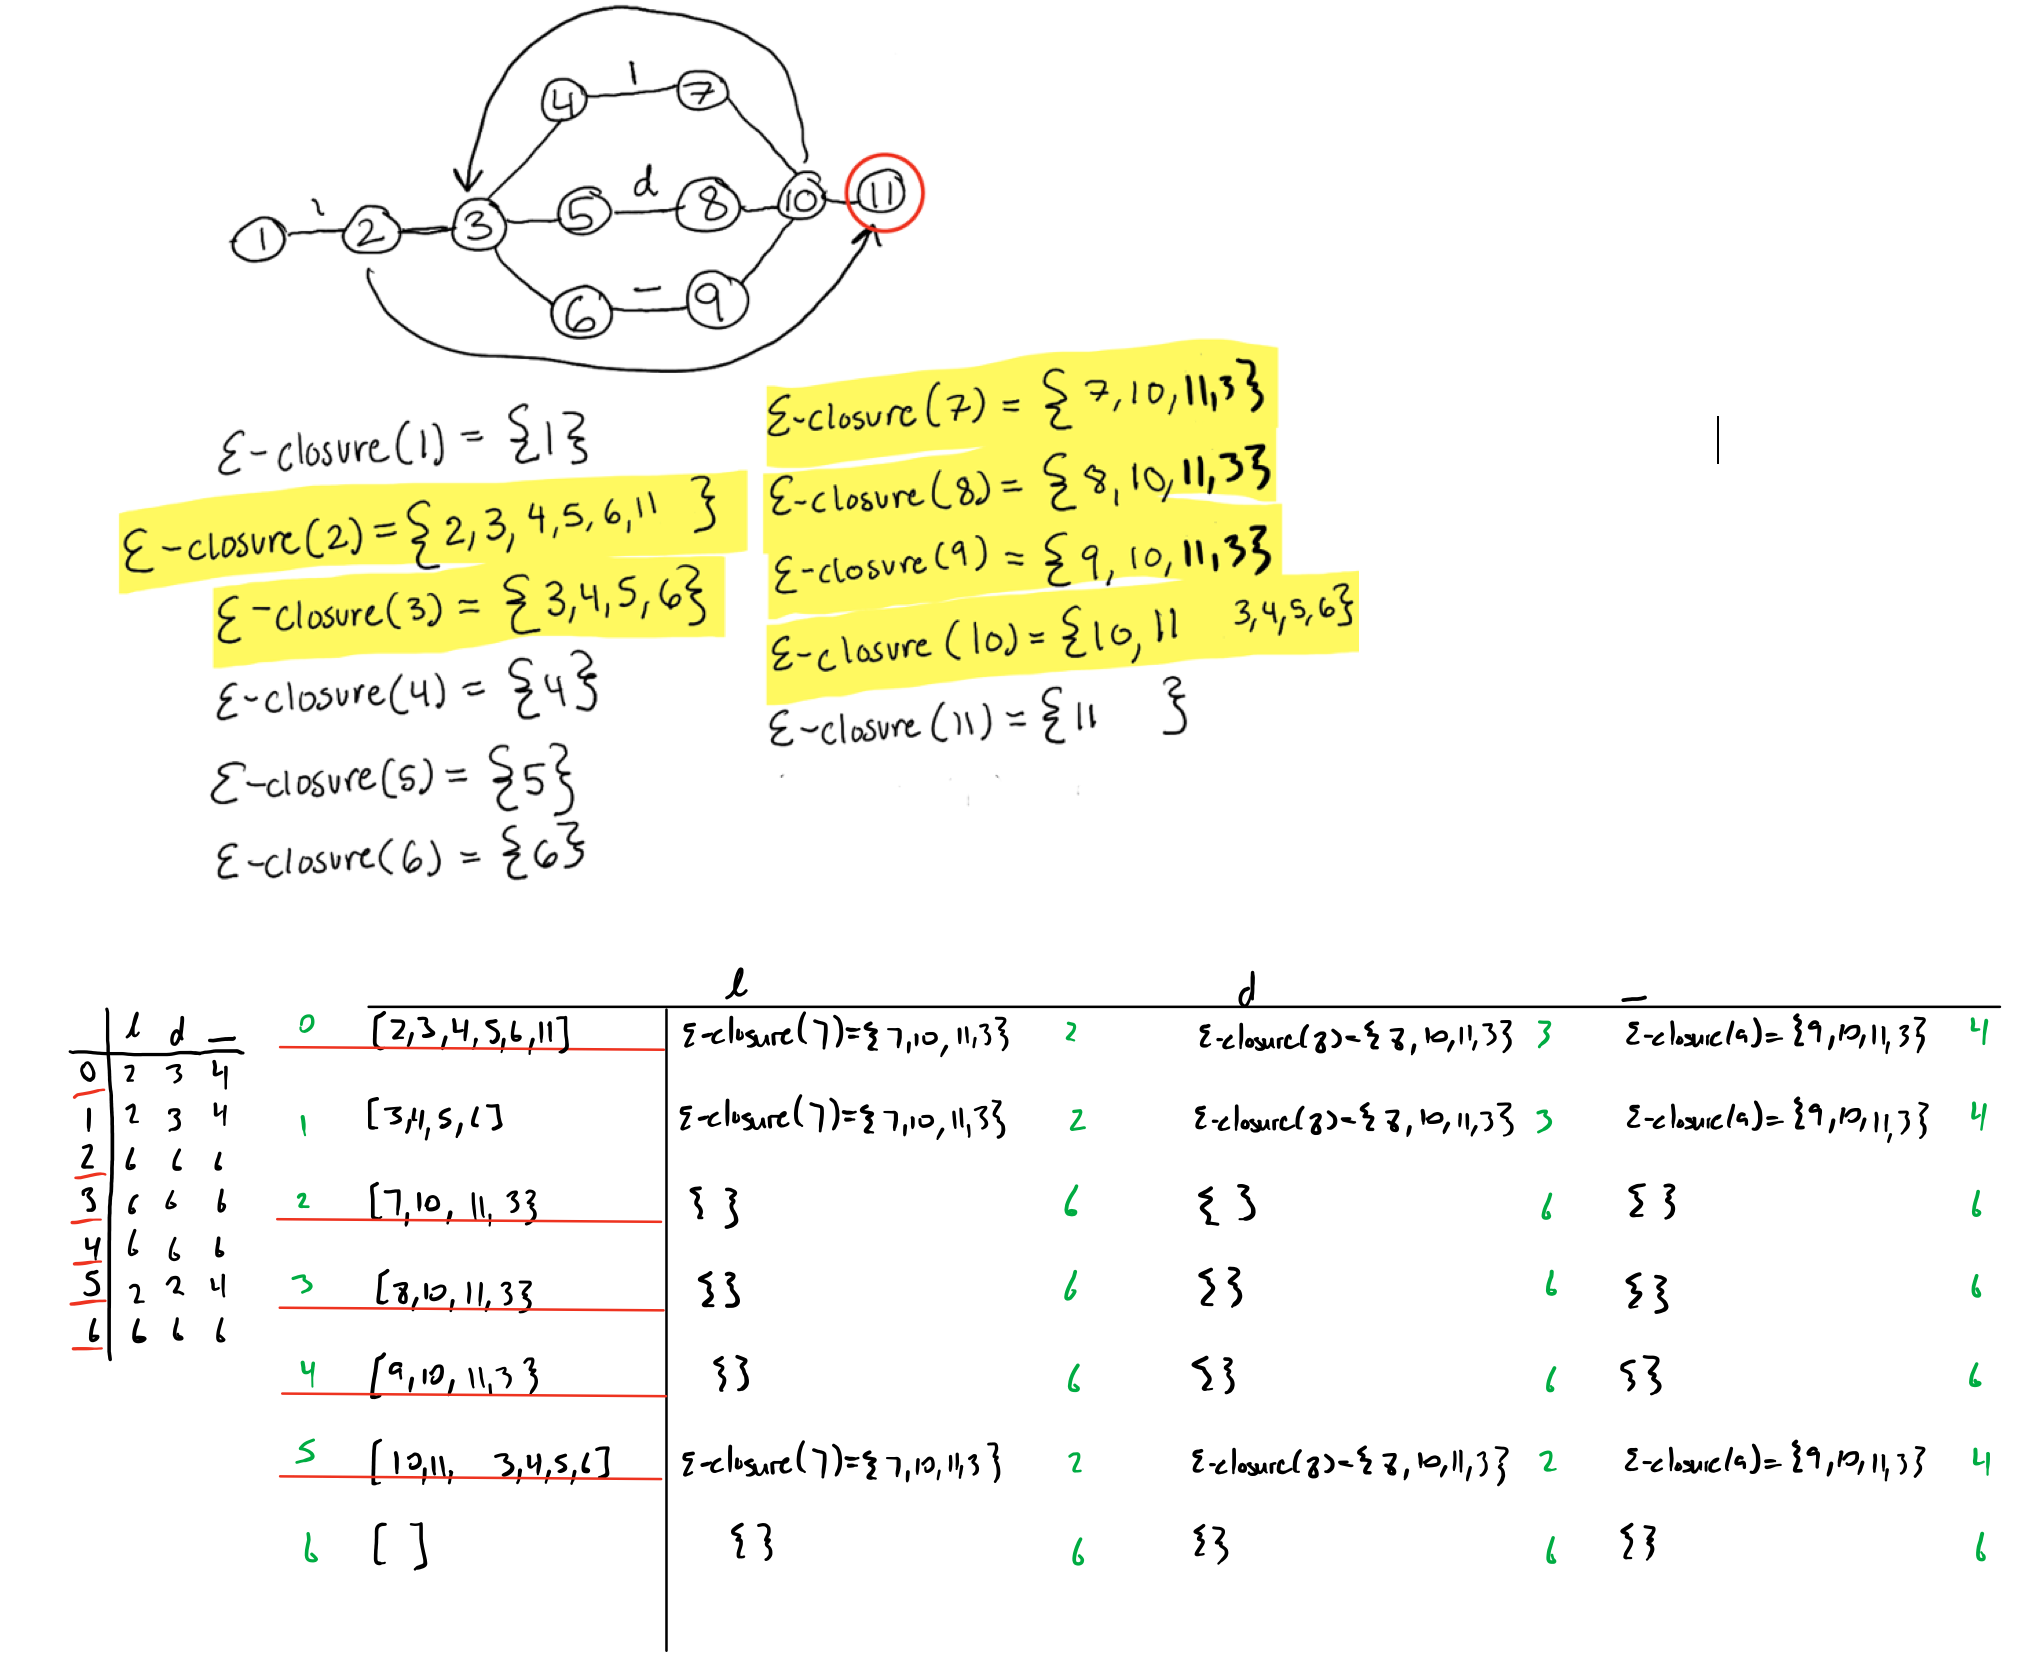 l
4 7
d
1 2 3 5 8 10 11
6 – 9
ε-closure(1) = {1}
ε-closure(2) = {2,3,4,5,6,11 }
ε-closure(3) = {3,4,5,6}
ε-closure(4) = {4}
ε-closure(5) = {5}
ε-closure(6) = {6}
ε-closure(7) = {7,10,11,3}
ε-closure(8) = {8,10,11,3}
ε-closure(9) = {9,10,11,3}
ε-closure(10) = {10,11 3,4,5,6}
ε-closure(11) = {11 }
l d _
0 2 3 4
1 2 3 4
2 6 6 6
3 6 6 6
4 6 6 6
5 2 2 4
6 6 6 6
l d _
0 [2,3,4,5,6,11] ε-closure(7)={7,10,11,3} 2 ε-closure(8)={8,10,11,3} 3 ε-closure(9)={9,10,11,3} 4
1 [3,4,5,6] ε-closure(7)={7,10,11,3} 2 ε-closure(8)={8,10,11,3} 3 ε-closure(9)={9,10,11,3} 4
2 [7,10,11,3} { } 6 { } 6 { } 6
3 [8,10,11,3} {} 6 {} 6 {} 6
4 [9,10,11,3} {} 6 {} 6 {} 6
5 [10,11, 3,4,5,6] ε-closure(7)={7,10,11,3} 2 ε-closure(8)={8,10,11,3} 2 ε-closure(9)={9,10,11,3} 4
6 [ ] {} 6 {} 6 {} 6